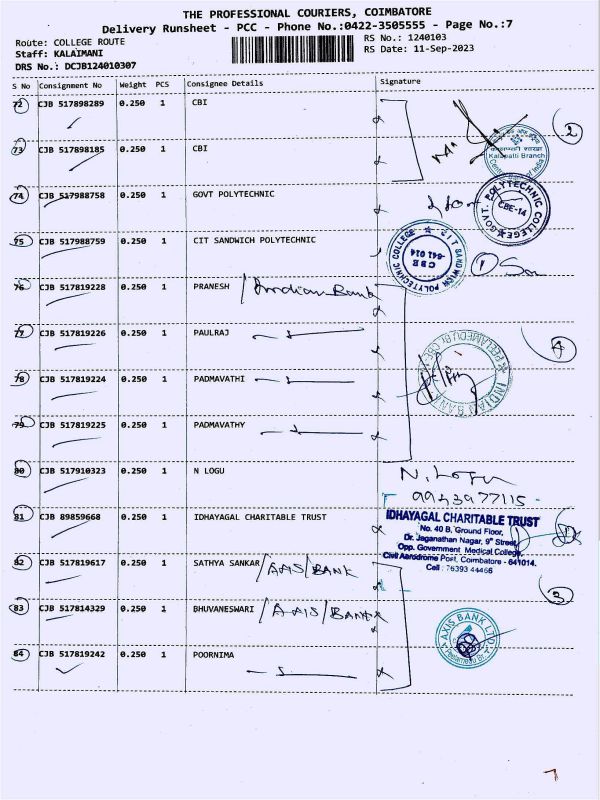 THE PROFESSIONAL COURIERS, COIMBATORE
Delivery Runsheet - PCC - Phone No.:0422-3505555 - Page No.:7
Route: COLLEGE ROUTE
RS No.: 1240103
Staff: KALAIMANI
RS Date: 11-Sep-2023
DRS No.: DCJB124010307
S No Consignment No Weight PCS Consignee Details Signature
72 CJB 517898289 0.250 1 CBI
2
Kalapatti Branch
73 CJB 517898185 0.250 1 CBI
74 CJB 517988758 0.250 1 GOVT POLYTECHNIC
GOVT. POLYTECHNIC COLLEGE
CBE-14
75 CJB 517988759 0.250 1 CIT SANDWICH POLYTECHNIC
C I T SANDWICH POLYTECHNIC COLLEGE
CBE
641 014
1
76 CJB 517819228 0.250 1 PRANESH / Indian Bank
77 CJB 517819226 0.250 1 PAULRAJ
4
INDIAN BANK
78 CJB 517819224 0.250 1 PADMAVATHI
79 CJB 517819225 0.250 1 PADMAVATHY
80 CJB 517910323 0.250 1 N LOGU
N. Logu
9943977115
81 CJB 89859668 0.250 1 IDHAYAGAL CHARITABLE TRUST
IDHAYAGAL CHARITABLE TRUST
No. 40 B, Ground Floor,
Dr. Jaganathan Nagar, 9th Street,
Opp. Government Medical College,
Civil Aerodrome Post, Coimbatore - 641014.
Cell : 76393 44466
82 CJB 517819617 0.250 1 SATHYA SANKAR / AXIS / BANK
3
83 CJB 517814329 0.250 1 BHUVANESWARI / AXIS / BANK
AXIS BANK LTD
84 CJB 517819242 0.250 1 POORNIMA
7